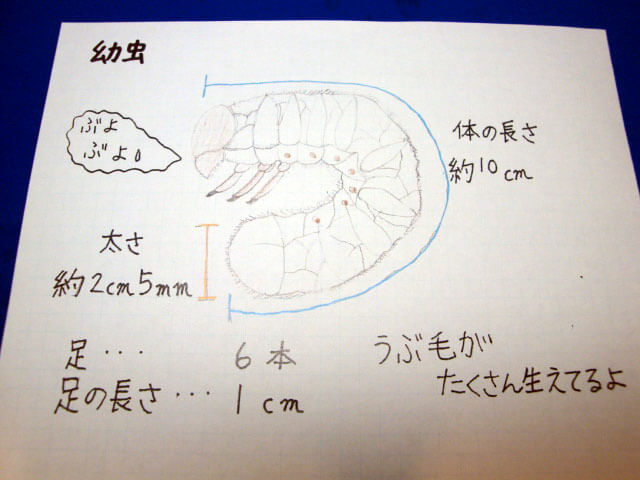 幼虫
ぶよ
ぶよ。
体の長さ
約10cm
太さ
約2cm5mm
足・・・ 6本
足の長さ・・・ 1cm
うぶ毛が
たくさん生えてるよ